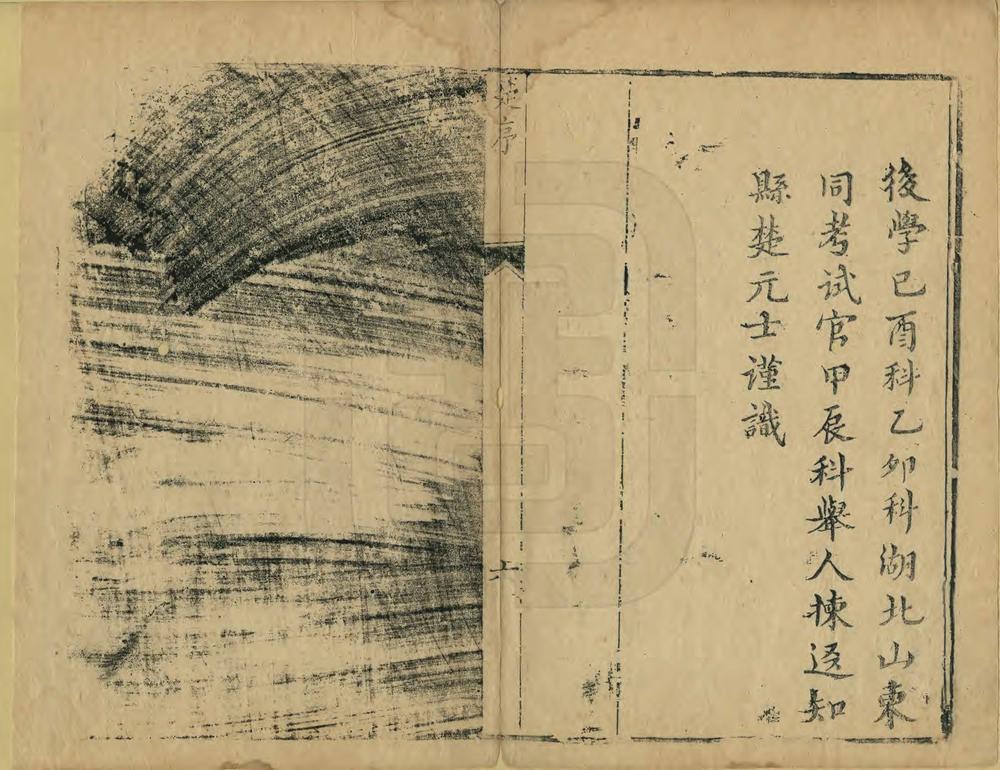 後學已酉科乙卯科湖北山東
同考試官甲辰科舉人揀逕知
縣楚元士謹識
楚序
六